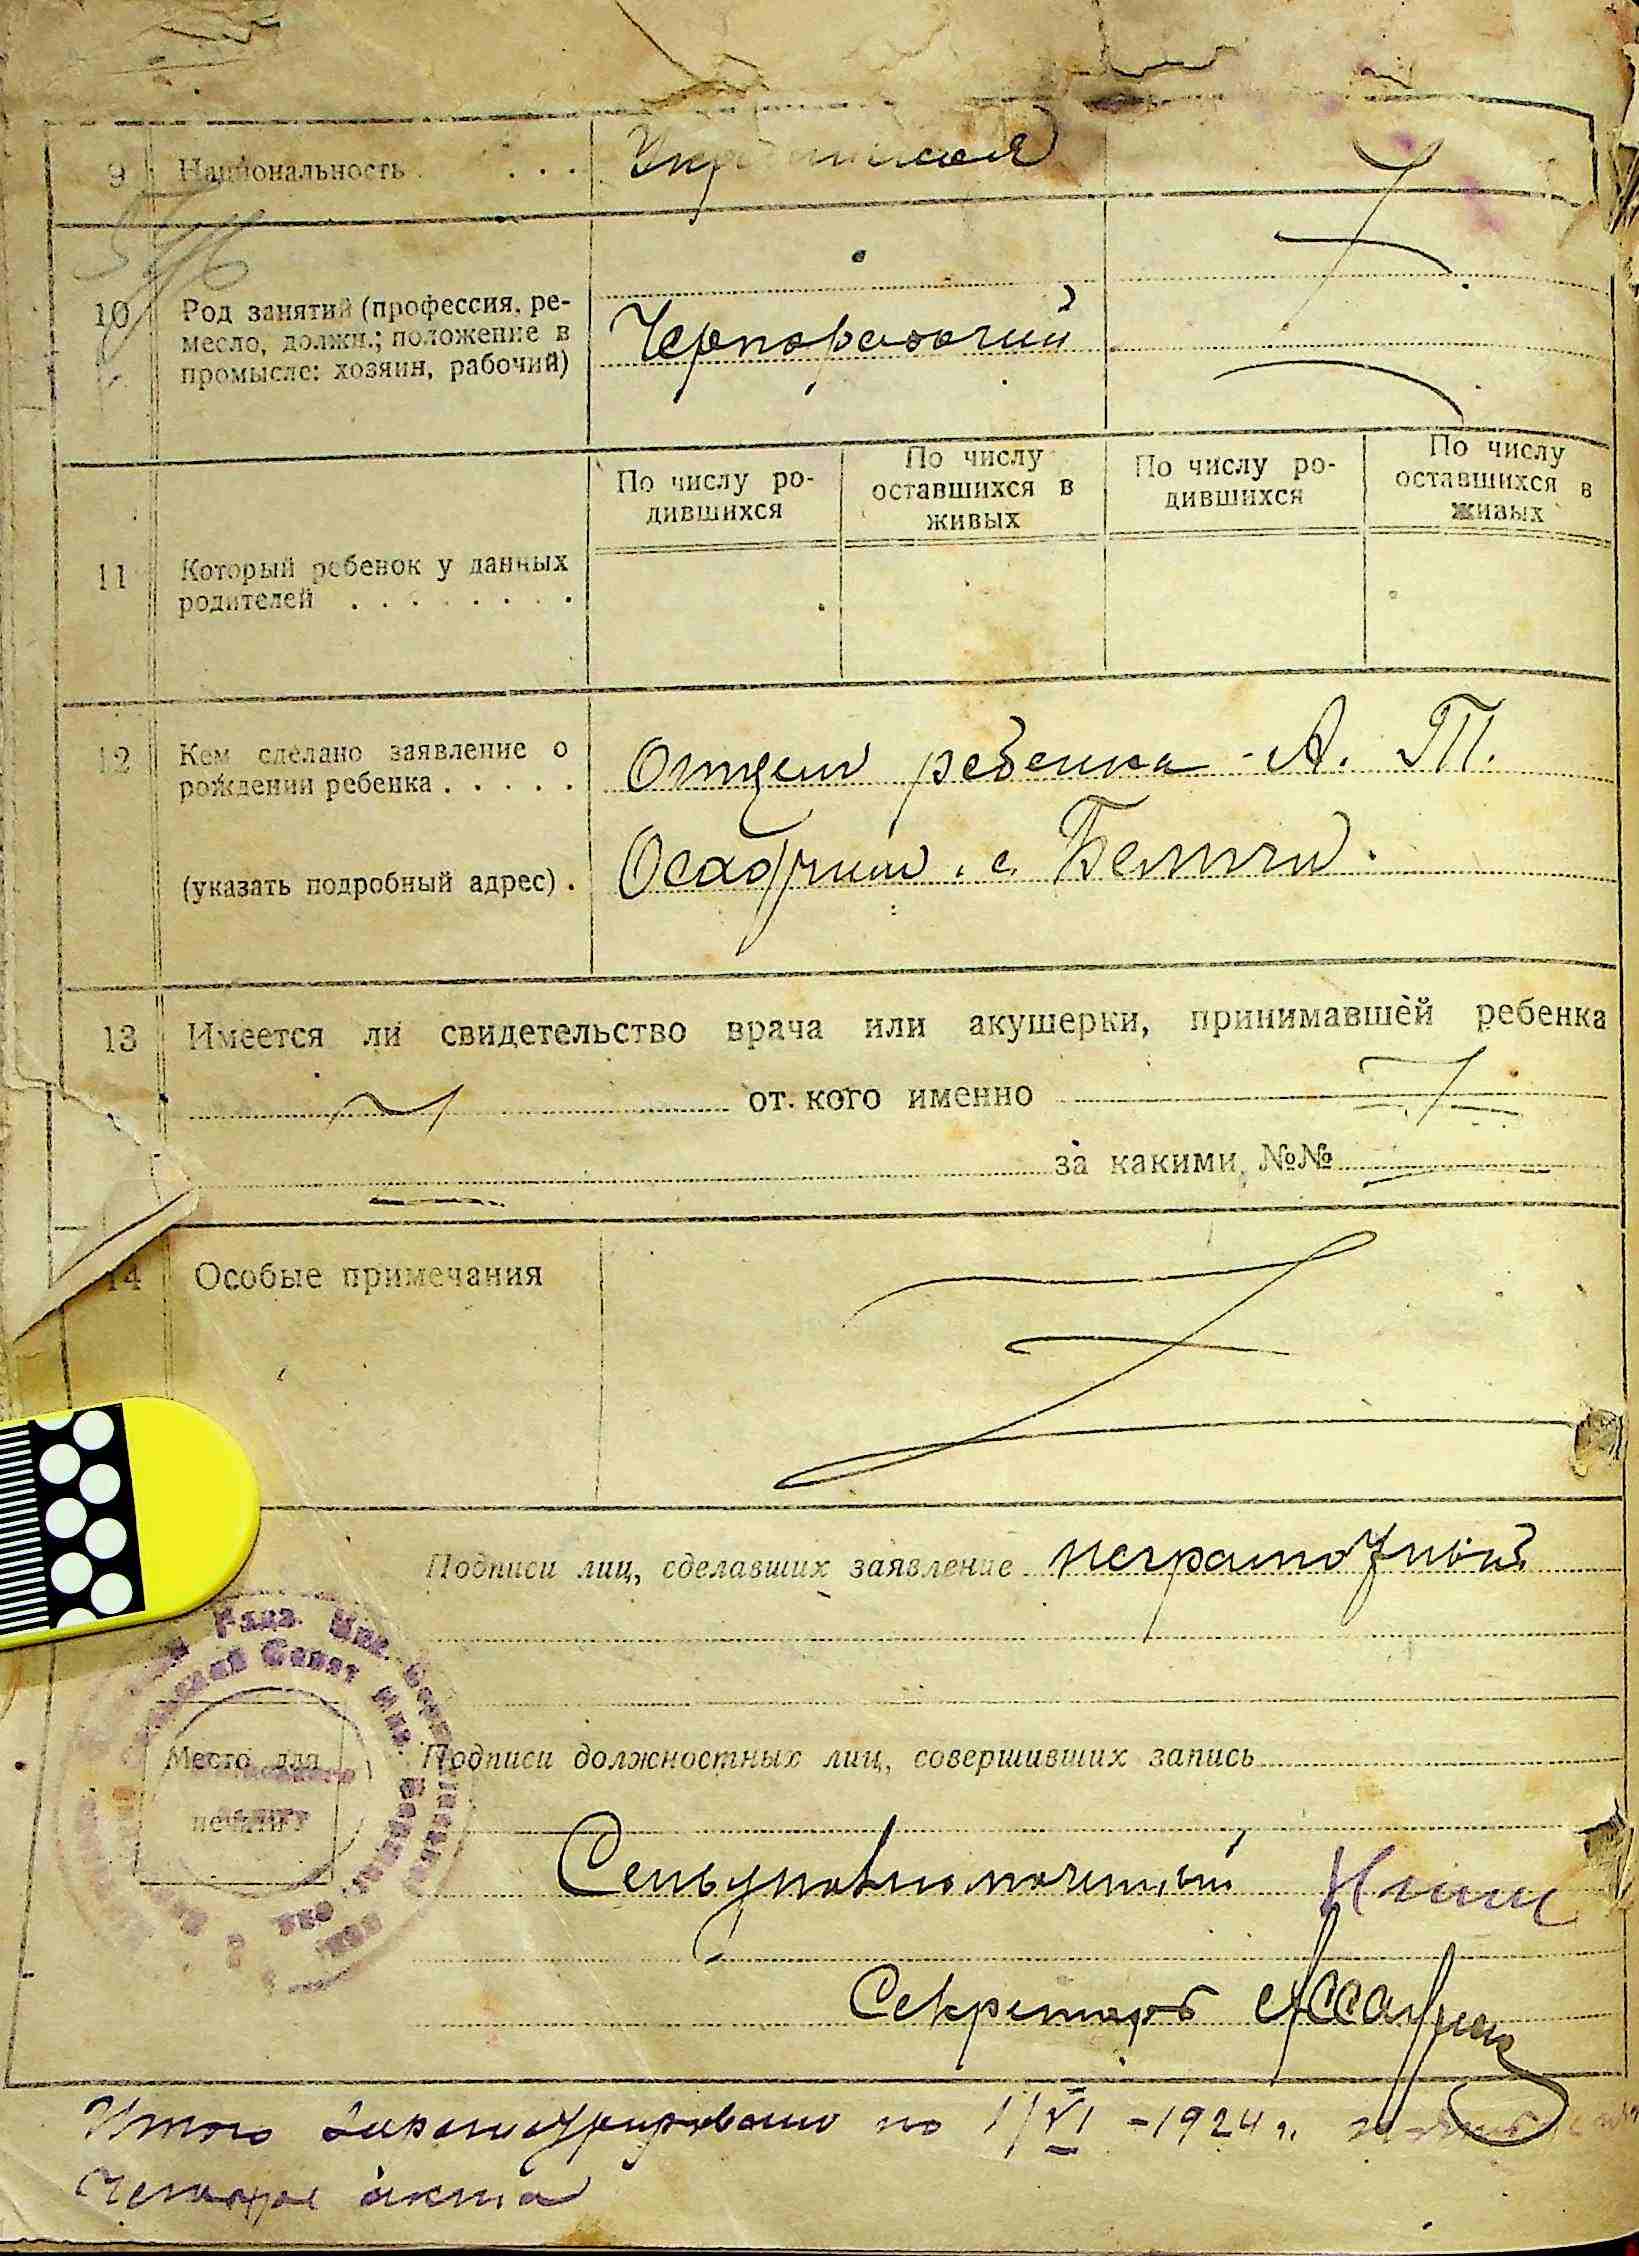 9 Национальность . . . . Украинская
10 Род занятий (профессия, ре-
месло, должн.; положение в
промысле: хозяин, рабочий)
Чернорабочий
11 Который ребенок у данных
родителей . . . . . . . .
По числу ро-
дившихся
По числу
оставшихся в
живых
По числу ро-
дившихся
По числу
оставшихся в
живых
12 Кем сделано заявление о
рождении ребенка . . . . .
(указать подробный адрес) .
Отцем ребенка - А. Т.
Осадчим. с.
13 Имеется ли свидетельство врача или акушерки, принимавшей ребенка
от кого именно
за какими №№
14 Особые примечания
Подписи лиц, сделавших заявление неграмотный
Место для
печати
Подписи должностных лиц, совершивших запись
Сельуполномоченный
Секретарь
Итого зарегистрировано по 1/VI - 1924 г.
Четыре акта